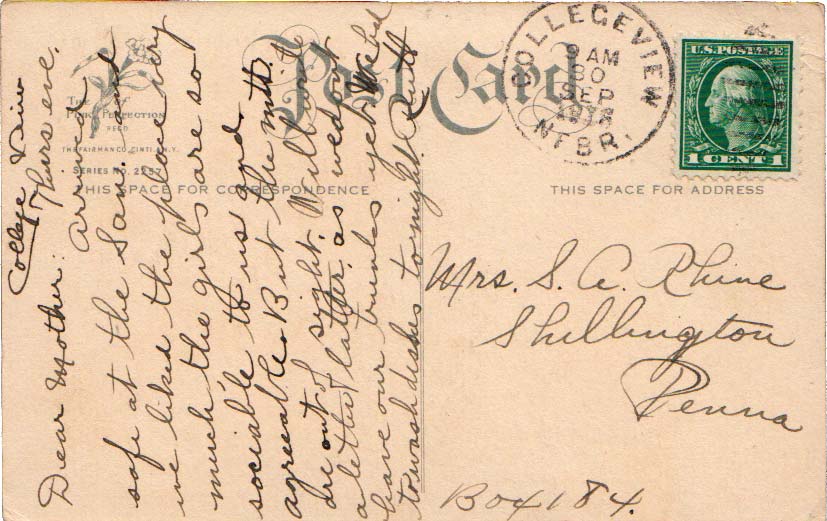 College View
Thurs eve.
Dear Mother: Arrived
safe at the San. and
we liked the place very
much the girls are so
sociable to us and
agreeable. But the mts.
are out of sight. Will write
a letter later, as we don't
have our trunks yet. We
to wash dishes tonight. Ruth
Post Card
The
Pink Perfection
FEED
THE FAIRMAN CO. CINTI. & N.Y.
SERIES NO. 2257
THIS SPACE FOR CORRESPONDENCE
THIS SPACE FOR ADDRESS
COLLEGEVIEW
9 AM
30
SEP
NEBR.
U.S. POSTAGE
1 CENT 1
Mrs. S. A. Rhine
Shillington
Penna
Box 184.